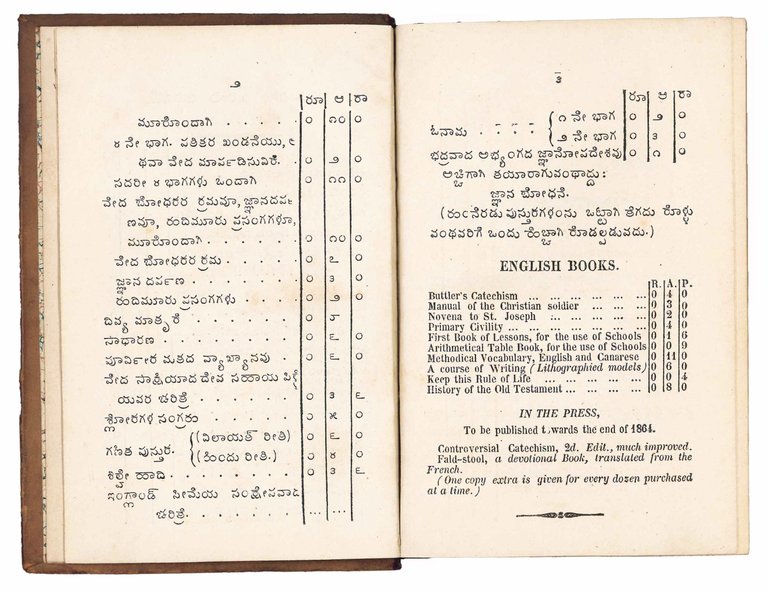 ೨
ರೂ ಆ ರಾ
ಮೂರೊಂದಾಗಿ . . . . . ೦ ೧೦ ೦
೪ ನೇ ಭಾಗ. ಪತಿತರ ಖಂಡನೆಯು,
ಥವಾ ವೇದ ೦ ೨ ೦
ಸದರೀ ೪ ಭಾಗಗಳು ಒಂದಾಗಿ ೦ ೧೧ ೦
ವೇದ ಬೋಧಕರ ಕ್ರಮವೂ, ಜ್ಞಾನದರ್ಪ
ಣವೂ, ಪ್ರಸಂಗಗಳೂ,
ಮೂರೊಂದಾಗಿ . . . . . ೦ ೧೦ ೦
ವೇದ ಬೋಧಕರ ಕ್ರಮ . . . . ೦ ೭ ೦
ಜ್ಞಾನ ದರ್ಪಣ . . . . . . ೦ ೩ ೦
ಪ್ರಸಂಗಗಳು . . . . ೦ ೨ ೦
ದಿವ್ಯ ಮಾತೃಕೆ . . . . . . ೦
ಸಾಧಾರಣ . . . . . . . ೦ ೬ ೦
ಮತದ ವ್ಯಾಖ್ಯಾನವು . . . ೦ ೬ ೦
ವೇದ ಸಾಕ್ಷಿಯಾದ ದೇವ ಸಹಾಯ ಪಿಳ್ಳೆ
ಯವರ ಚರಿತ್ರೆ . . . . . ೦ ೩ ೬
ಶ್ಲೋಕಗಳ ಸಂಗ್ರಹ . . . . . ೦ ೫ ೦
ಗಣಿತ ಪುಸ್ತಕ. { (ವಿಲಾಯತ್ ರೀತಿ) ೦ ೬ ೦
(ಹಿಂದು ರೀತಿ.) ೦ ೪ ೦
ಶಿಲ್ವೇ ಹಾದಿ . . . . . . ೦ ೩ ೬
ಇಂಗ್ಲಾಂಡ್ ಸೀಮೆಯ ಸಂಕ್ಷೇಪವಾದ
ಚರಿತ್ರೆ. . . . . . . ... ...
೩
ರೂ ಆ ರಾ
ಓನಾಮ . . . . { ೧ ನೇ ಭಾಗ ೦ ೨ ೦
೨ ನೇ ಭಾಗ ೦ ೩ ೦
ಭದ್ರವಾದ ಅಭ್ಯಂಗದ ಜ್ಞಾನೋಪದೇಶವು ೦ ೧ ೦
ಅಚ್ಚಿಗಾಗಿ ತಯಾರಾಗುವಂಥಾದ್ದು:
ಜ್ಞಾನ ಬೋಧನೆ.
(ಹಂನೆರಡು ಪುಸ್ತಕಗಳಂನು ಒಟ್ಟಾಗಿ ತೆಗದು ಕೊಳ್ಳು
ವಂಥವರಿಗೆ ಒಂದು ಹೆಚ್ಚಾಗಿ ಕೊಡಲ್ಪಡುವದು.)
ENGLISH BOOKS.
R. A. P.
Buttler's Catechism ... ... ... ... ... ... 0 4 0
Manual of the Christian soldier ... ... ... 0 3 0
Novena to St. Joseph ... ... ... ... ... 0 2 0
Primary Civility ... ... ... ... ... ... ... 0 4 0
First Book of Lessons, for the use of Schools 0 1 6
Arithmetical Table Book, for the use of Schools 0 0 9
Methodical Vocabulary, English and Canarese 0 11 0
A course of Writing (Lithographied models) 0 6 0
Keep this Rule of Life ... ... ... ... ... 0 0 4
History of the Old Testament ... ... ... ... 0 8 0
IN THE PRESS,
To be published towards the end of 1864.
Controversial Catechism, 2d. Edit., much improved.
Fald-stool, a devotional Book, translated from the
French.
(One copy extra is given for every dozen purchased
at a time.)